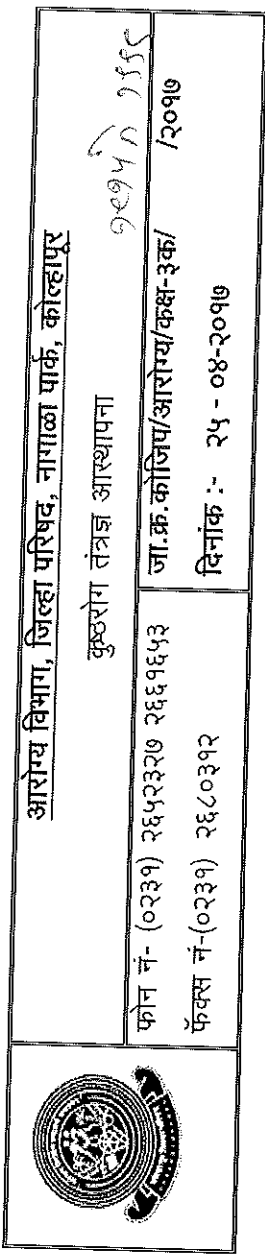 आरोग्य विभाग, जिल्हा परिषद, नागाळा पार्क, कोल्हापूर
कुष्ठरोग तंत्रज्ञ आस्थापना
फोन नं- (०२३१) २६५२३२७ २६६१६५३
फॅक्स नं-(०२३१) २६८०३१२
जा.क्र.कोजिप/आरोग्य/कक्ष-३क/ /२०१७
दिनांक :- २५ - ०४-२०१७